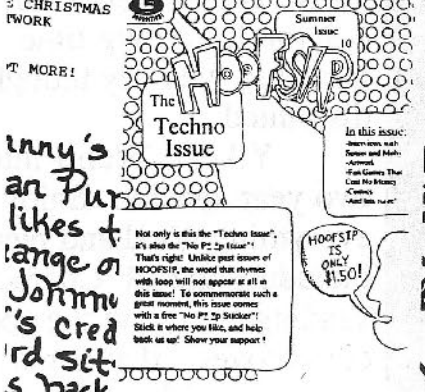 CHRISTMAS
TWORK
MORE!
Summer
Issue
10
HOOFSIP
The
Techno
Issue
In this issue:
-Interviews with
-Artwork
-Fun Games That
Cost No Money
-Comics
Not only is this the "Techno Issue",
it's also the "No P* *p Issue"!
That's right! Unlike past issues of
HOOFSIP, the word that rhymes
with loop will not appear at all in
this issue! To commemorate such a
great moment, this issue comes
with a free "No P* *p Sucker"!
Stick it where you like, and help
back us up! Show your support!
HOOFSIP
IS
ONLY
$1.50!
likes
back